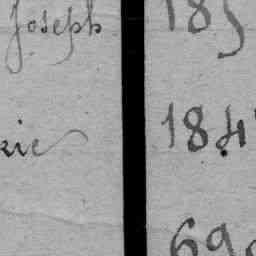 Joseph 185
rie 184
69